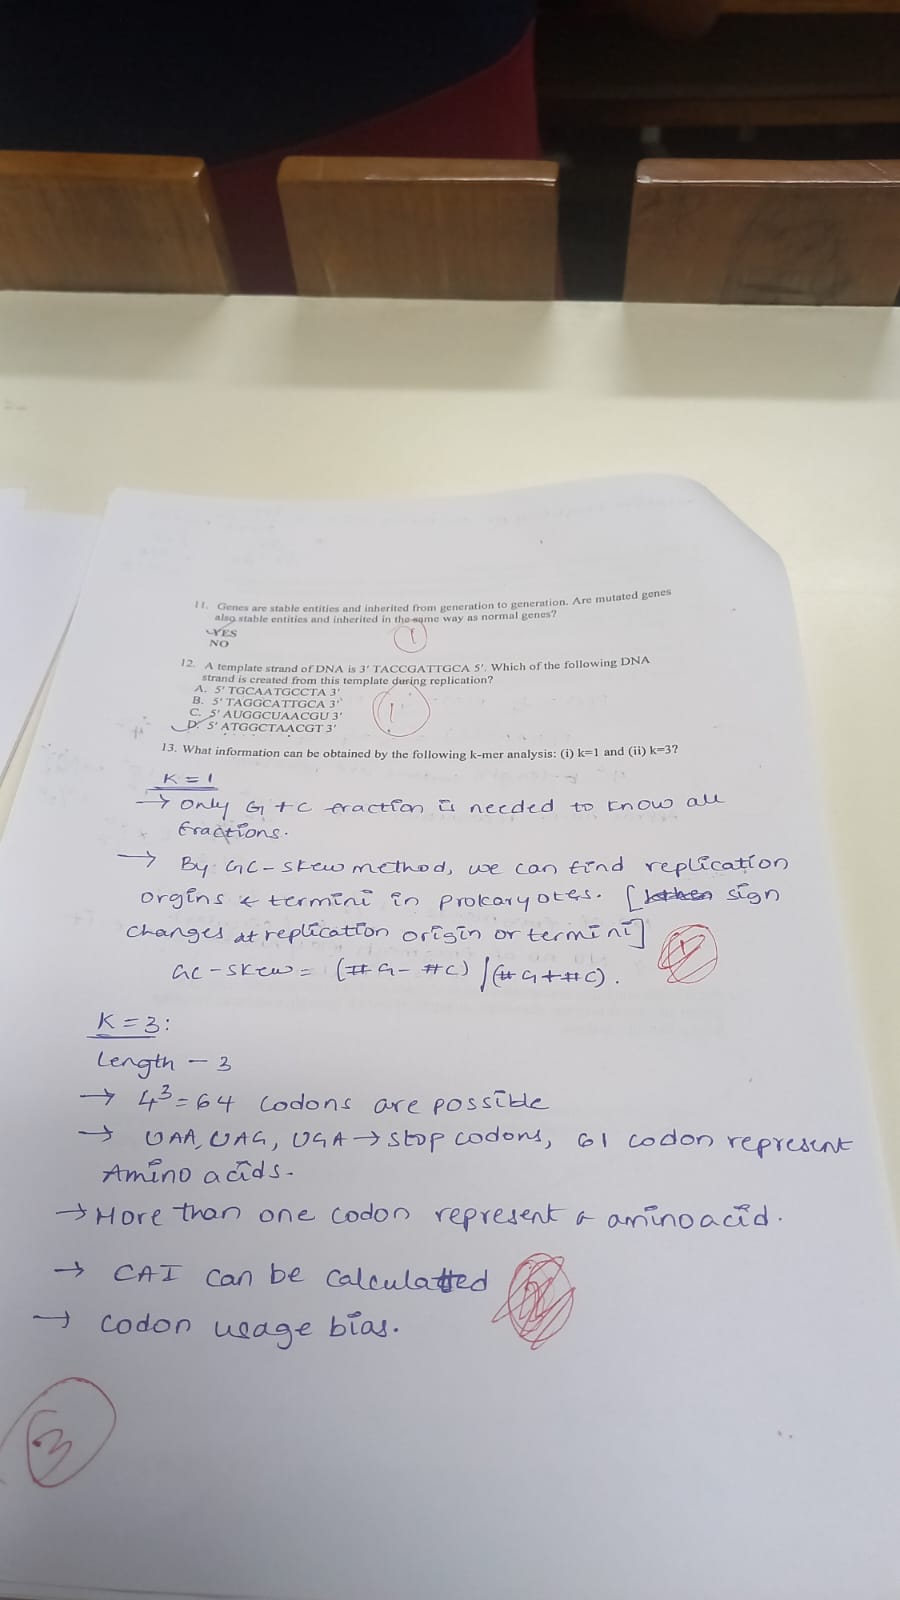 11. Genes are stable entities and inherited from generation to generation. Are mutated genes
also stable entities and inherited in the same way as normal genes?
YES
NO
1
12. A template strand of DNA is 3' TACCGATTGCA 5'. Which of the following DNA
strand is created from this template during replication?
A. 5' TGCAATGCCTA 3'
B. 5' TAGGCATTGCA 3'
C. 5' AUGGCUAACGU 3'
D. 5' ATGGCTAACGT 3'
1
13. What information can be obtained by the following k-mer analysis: (i) k=1 and (ii) k=3?
K = 1
→ Only G+C fraction is needed to know all
fractions.
→ By GC-skew method, we can find replication
orgins & termini in prokaryotes. [ sign
changes at replication origin or termini]
GC-skew = (#G - #C) / (#G + #C).
K = 3:
Length - 3
→ 4³ = 64 codons are possible
→ UAA, UAG, UGA → stop codons, 61 codon represent
Amino acids.
→ More than one codon represent a aminoacid.
→ CAI can be calculated
→ codon usage bias.
3